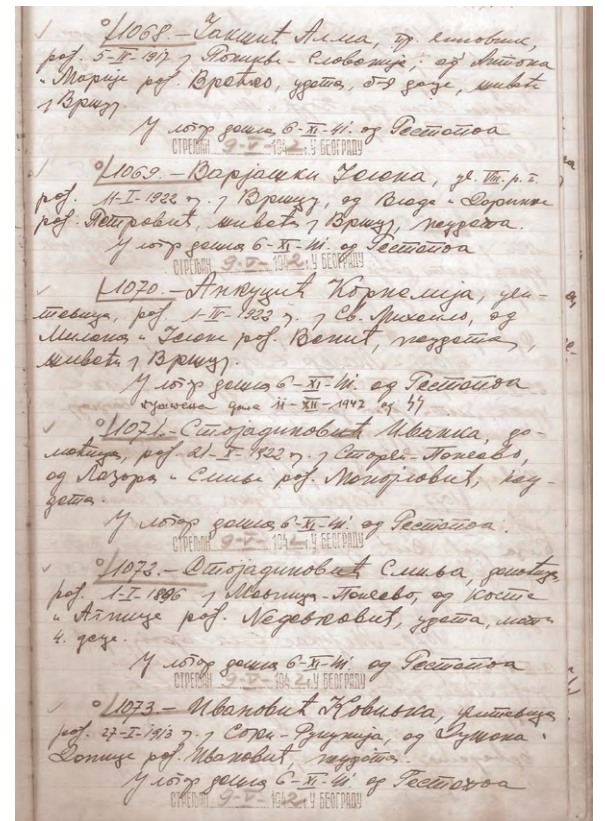 1068.– Јакшић Алма,
рођ. 5-II-1917 у - Словакија, од Антона
и Марије рођ. удата, живећи
у Вршцу
У логор дошла 6-XI-41. од Гестапоа
СТРЕЉАН 9-V-1942. У БЕОГРАДУ
1069.– Варјашки Јелена, уч. VIII. р. г.
рођ. 11-I-1922 г. у Вршцу, од Владе и Даринке
рођ. Петровић, живећи у Вршцу, неудата.
У логор дошла 6-XI-41. од Гестапоа
СТРЕЉАН 9-V-1942. У БЕОГРАДУ
1070.– Анкуцић Корнелија, учи-
тељица, рођ. 1-IV-1922 г. у Св. Михаило, од
Милана и Јелене рођ. неудата,
живећи у Вршцу.
У логор дошла 6-XI-41. од Гестапоа
дана 11-XII-1942 од
1071.– Стојадиновић Иванка, до-
маћица, рођ. 21-X-1922 г. у Старо-Лонсево,
од Лазара и Смиље рођ. Манојловић, неу-
дата.
У логор дошла 6-XI-41. од Гестапоа.
СТРЕЉАН 9-V-1942. У БЕОГРАДУ
1072.– Стојадиновић Смиља, домаћица
рођ. 1-I-1896 у од Косте
и рођ. Недељковић, удата, мати
4. деце.
У логор дошла 6-XI-41. од Гестапоа
СТРЕЉАН 9-V-1942. У БЕОГРАДУ
1073.– Ивановић Ковиљка, учитељица
рођ. 27-I-1913 г. у од Душана и
рођ. Ивановић, неудата.
У логор дошла 6-XI-41. од Гестапоа
СТРЕЉАН 9-V-1942. У БЕОГРАДУ